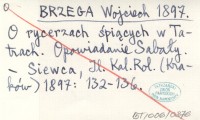 BRZEGA Wojciech 1897.
O rycerzach śpiących w Ta-
trach. Opowiadanie Sabały.
– Siewca, Il. Kal. Rol. (Kra-
ków) 1897: 132-136.
BT/1000/0876